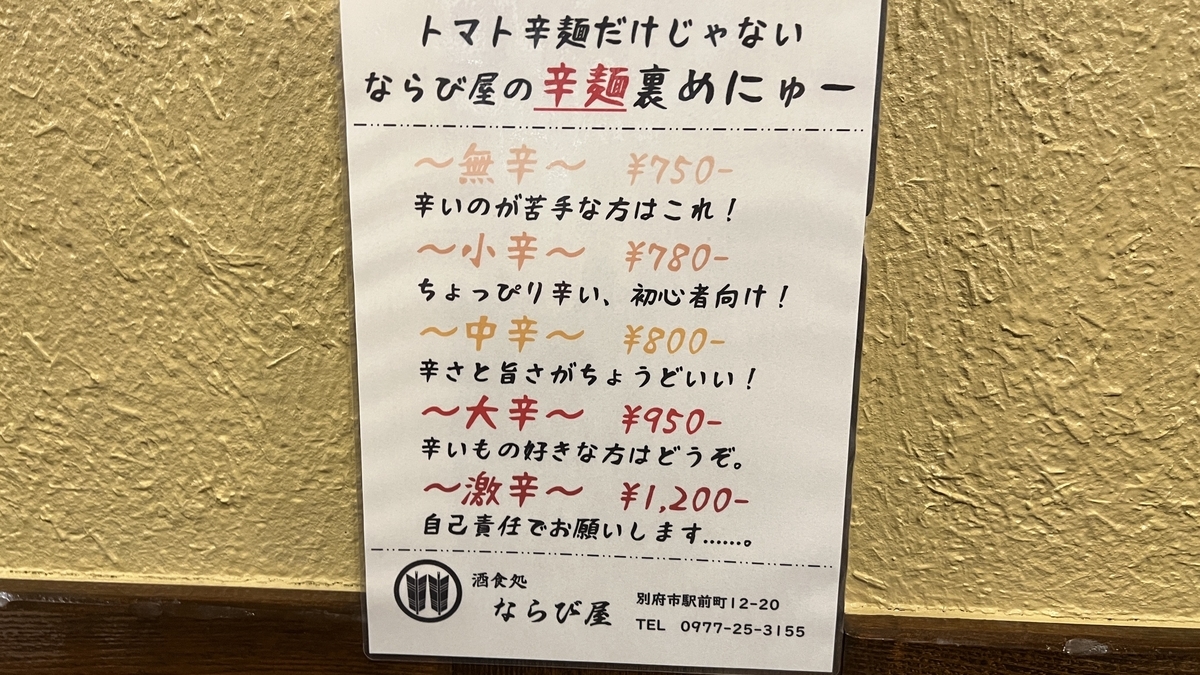 トマト辛麺だけじゃない
ならび屋の辛麺裏めにゅー
～無辛～ ¥750-
辛いのが苦手な方はこれ！
～小辛～ ¥780-
ちょっぴり辛い、初心者向け！
～中辛～ ¥800-
辛さと旨さがちょうどいい！
～大辛～ ¥950-
辛いもの好きな方はどうぞ。
～激辛～ ¥1,200-
自己責任でお願いします……。
酒食処
ならび屋
別府市駅前町12-20
TEL 0977-25-3155